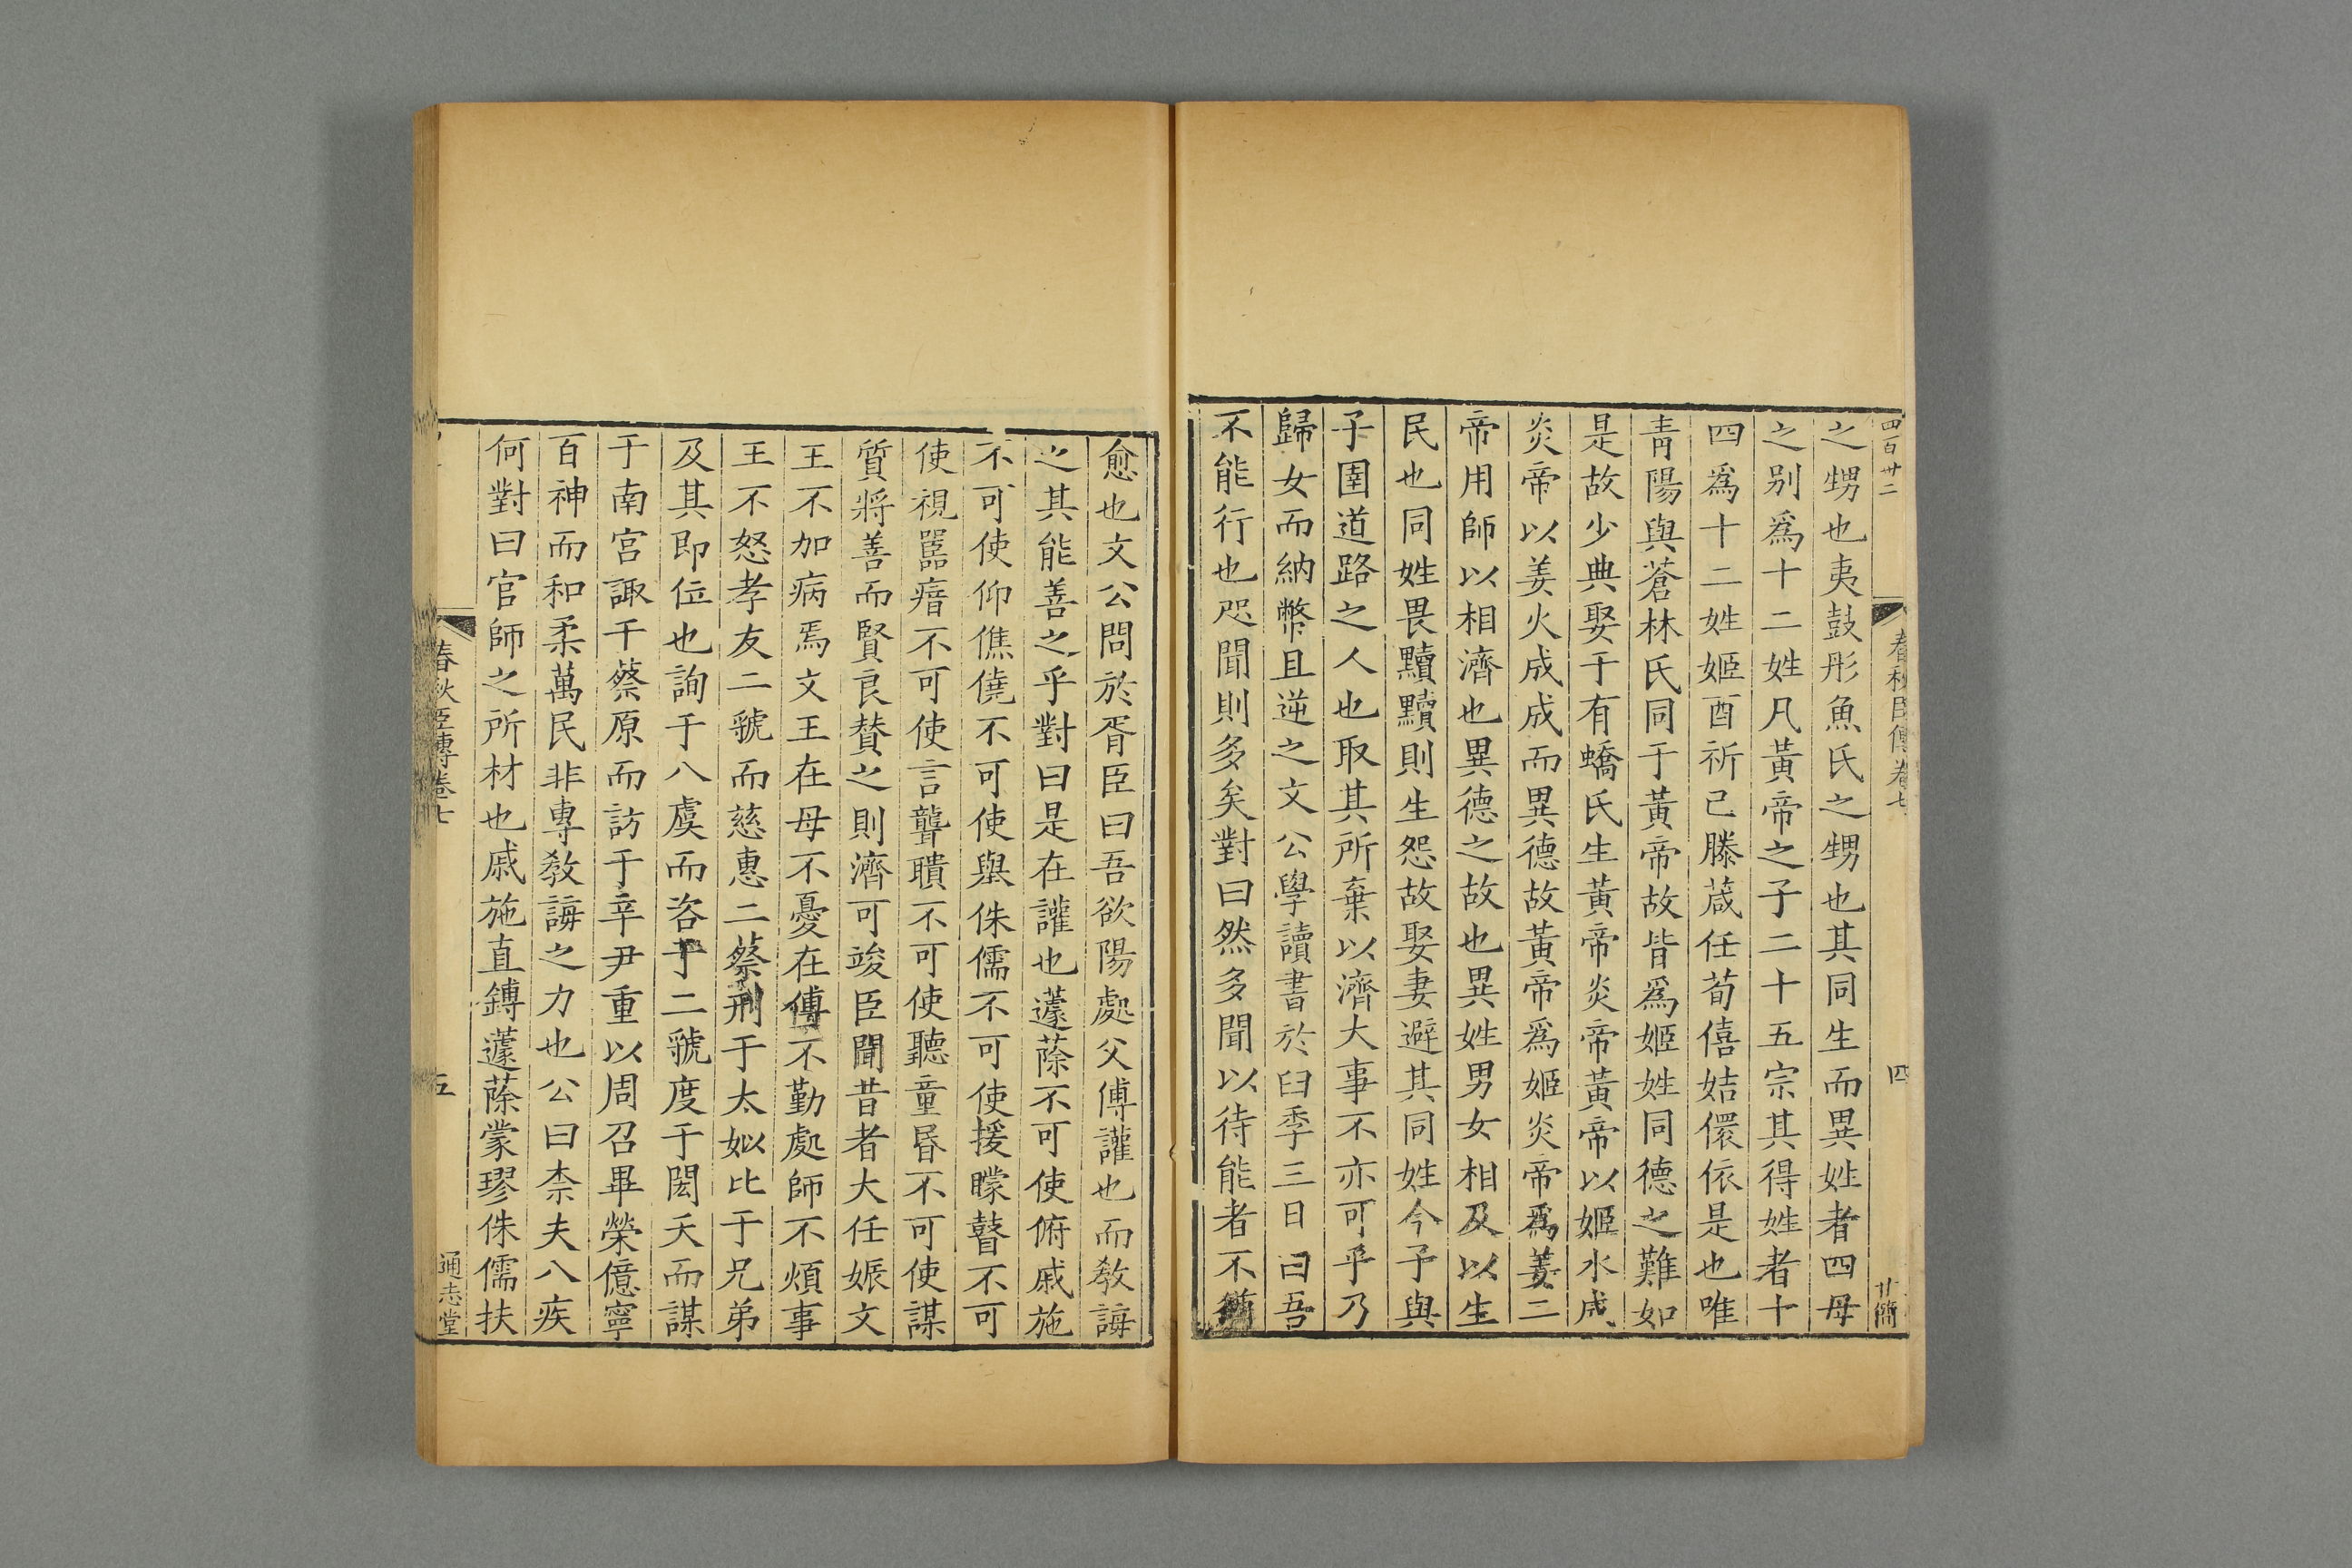 四百卅二
春秋臣傳卷七
四
之甥也夷鼓彤魚氏之甥也其同生而異姓者四母
之别爲十二姓凡黃帝之子二十五宗其得姓者十
四爲十二姓姬酉祈己滕葴任荀僖姞儇依是也唯
青陽與蒼林氏同于黃帝故皆爲姬姓同德之難如
是故少典娶于有蟜氏生黃帝炎帝黃帝以姬水成
炎帝以姜火成成而異德故黃帝爲姬炎帝爲姜二
帝用師以相濟也異德之故也異姓男女相及以生
民也同姓畏黷黷則生怨故娶妻避其同姓今予與
子圉道路之人也取其所棄以濟大事不亦可乎乃
歸女而納幣且逆之文公學讀書於臼季三日曰吾
不能行也咫聞則多矣對曰然多聞以待能者不猶
愈也文公問於胥臣曰吾欲陽處父傅讙也而教誨
之其能善之乎對曰是在讙也蘧蒢不可使俯戚施
不可使仰僬僥不可使舉侏儒不可使援矇瞽不可
使視嚚瘖不可使言聾聵不可使聽童昬不可使謀
質將善而賢良賛之則濟可竢臣聞昔者大任娠文
王不加病焉文王在母不憂在傅不勤處師不煩事
王不怒孝友二虢而慈惠二蔡刑于太姒比于兄弟
及其即位也詢于八虞而咨于二虢度于閎夭而謀
于南宮諏于蔡原而訪于辛尹重以周召畢榮億寧
百神而和柔萬民非專教誨之力也公曰柰夫八疾
何對曰官師之所材也戚施直鎛蘧蒢蒙璆侏儒扶
春秋臣傳卷七
五
通志堂